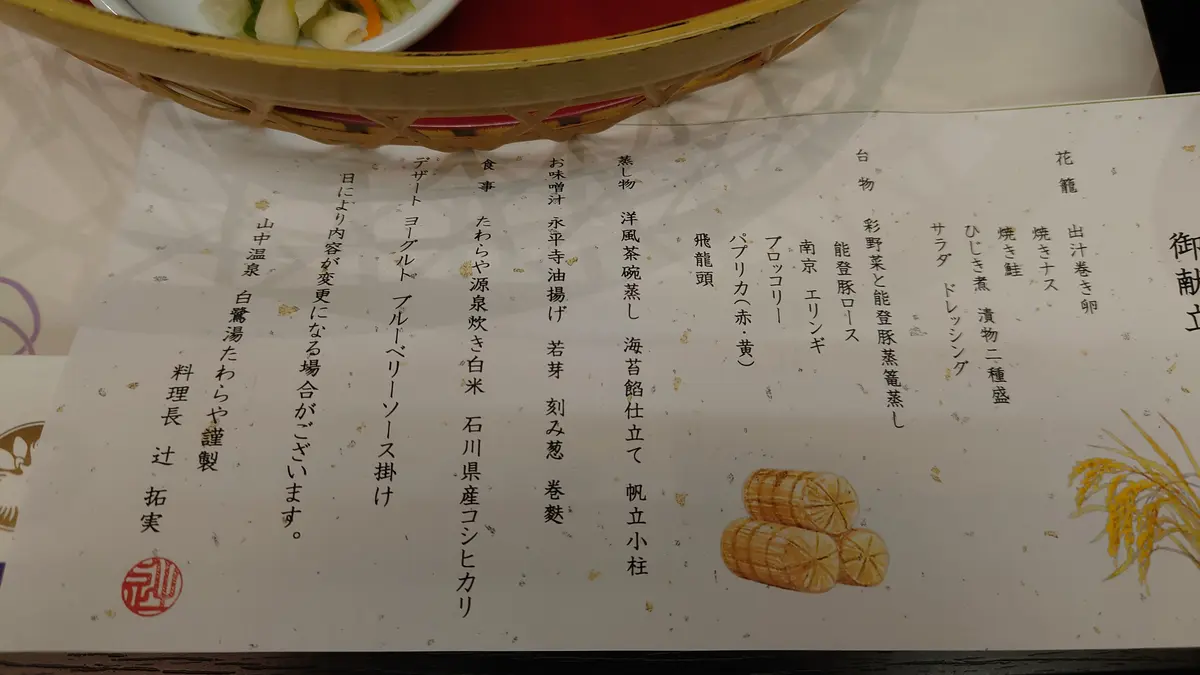 御献立
花籠
出汁巻き卵
焼きナス
焼き鮭
ひじき煮 漬物二種盛
サラダ ドレッシング
台物
彩野菜と能登豚蒸篭蒸し
能登豚ロース
南京 エリンギ
ブロッコリー
パプリカ(赤・黄)
飛龍頭
蒸し物 洋風茶碗蒸し 海苔餡仕立て 帆立小柱
お味噌汁 永平寺油揚げ 若芽 刻み葱 巻麩
食事 たわらや源泉炊き白米 石川県産コシヒカリ
デザート ヨーグルト ブルーベリーソース掛け
日により内容が変更になる場合がございます。
山中温泉 白鷺湯たわらや謹製
料理長 辻 拓実